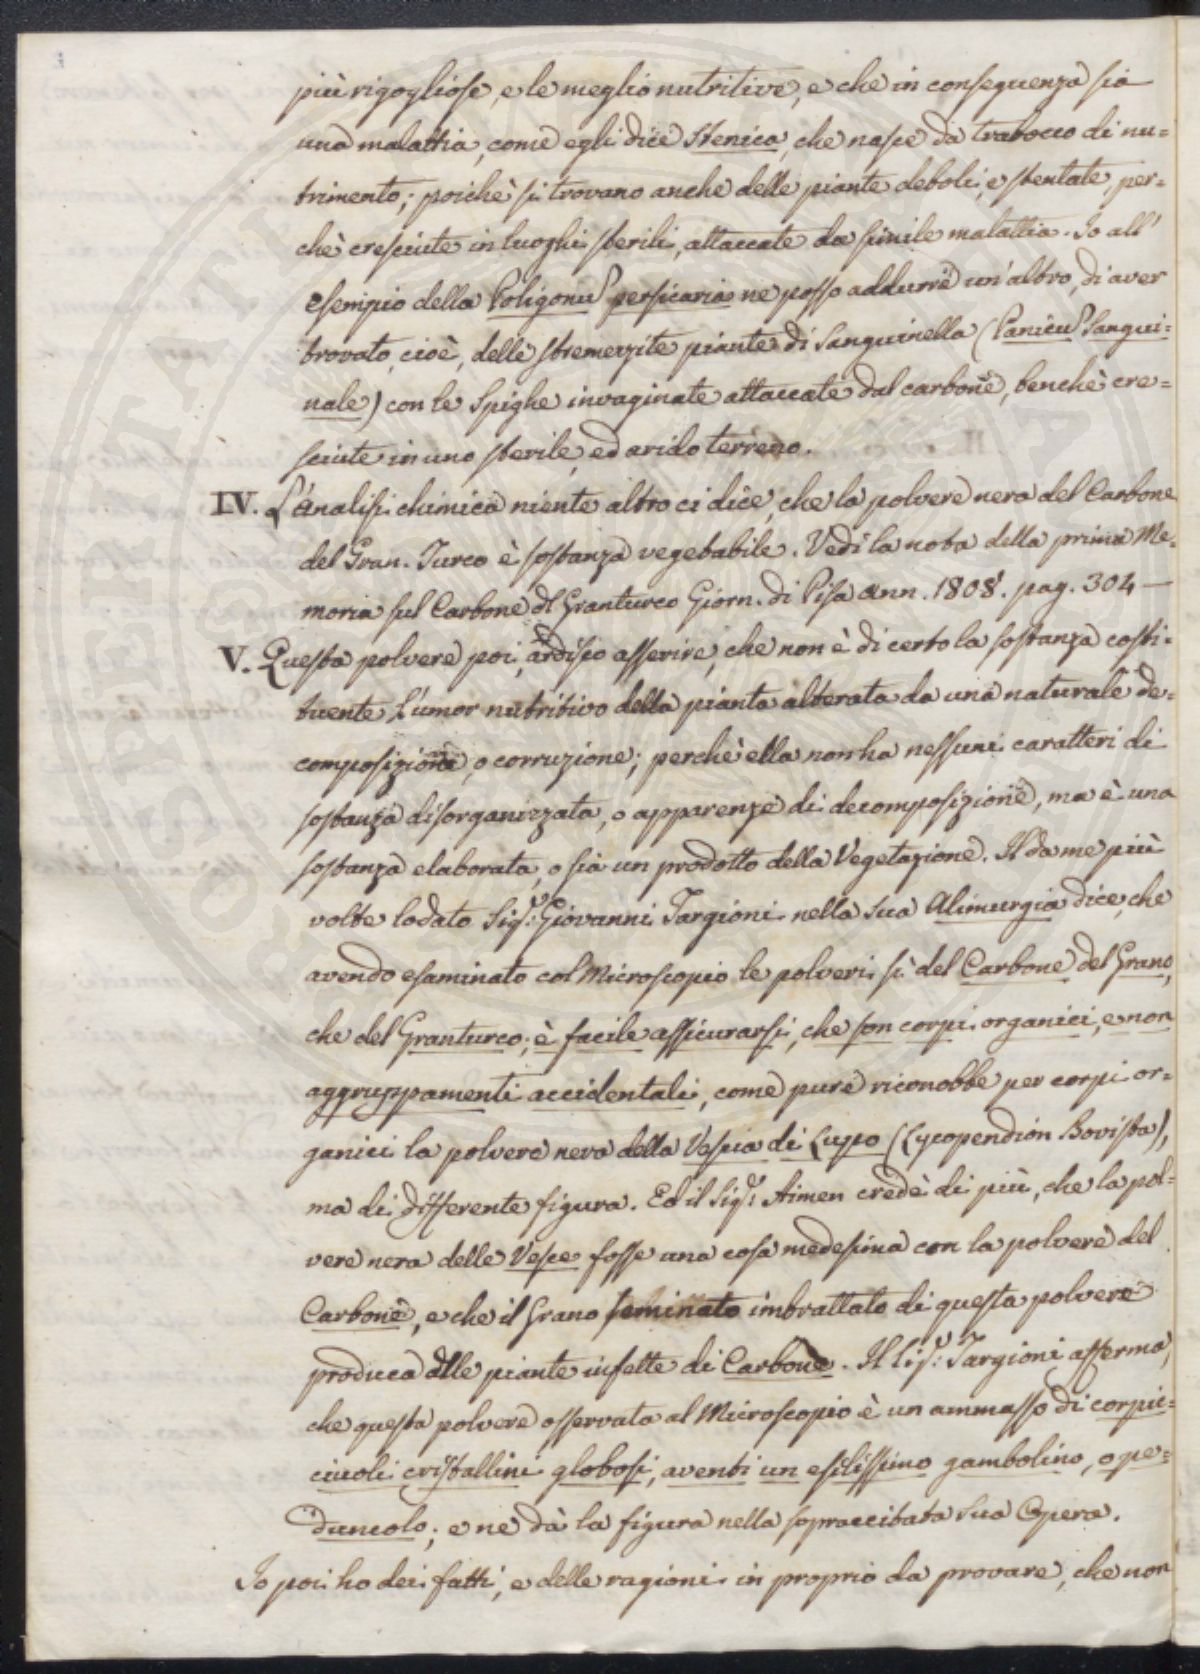 più rigogliose, e le meglio nutritive, e che in conseguenza sia
una malattia, come egli dice Stenica, che nasce da trabocco di nu=
trimento; poichè si trovano anche delle piante deboli, e stentate, per=
chè cresciute in luoghi sterili, attaccate da simile malattia. Io all'
esempio della Poligonu persicaria ne posso addurre un'altro, di aver
trovato, cioè, delle stremenzite piante di Sanguinella (Panicu Sangui=
nale) con le Spighe invaginate attaccate dal carbone, benchè cre=
sciute in uno sterile, ed arido terreno.
IV. L'Analisi chimica niente altro ci dice, che la polvere nera del Carbone
del Gran-Turco è sostanza vegetabile. Vedi la nota della prima Me=
moria sul Carbone dl Granturco Giorn. di Pisa ann. 1808. pag. 304 —
V. Questa polvere poi, ardisco asserire, che non è di certo la sostanza costi=
tuente l'umor nutritivo della pianta alterata da una naturale de=
composizione, o corruzione; perchè ella non ha nessuni caratteri di
sostanza disorganizzata, o apparenze di decomposizione, ma è una
sostanza elaborata, o sia un prodotto della Vegetazione. Il da me più
volte lodato Sigr: Giovanni Targioni nella sua Alimurgia dice, che
avendo esaminato col Microscopio le polveri sì del Carbone del Grano,
che del Granturco; è facile assicurarsi, che son corpi organici, e non
aggruppamenti accidentali, come pure riconobbe per corpi or=
ganici la polvere nera della Vescia di Lupo (Lycopendion Bovista),
ma di differente figura. Ed il Sigr: Aimen crede di più, che la pol=
vere nera delle Vesce fosse una cosa medesima con la polvere del
Carbone, e che il Grano seminato imbrattato di questa polvere
produca dlle piante infette di Carbone. Il Sigr: Targioni afferma,
che questa polvere osservata al Microscopio è un ammasso di corpic=
ciuoli cristallini globosi, aventi un esilissimo gambolino, o pe=
duncolo; e ne dà la figura nella sopraccitata sua Opera.
Io poi ho dei fatti, e delle ragioni in proprio da provare, che non